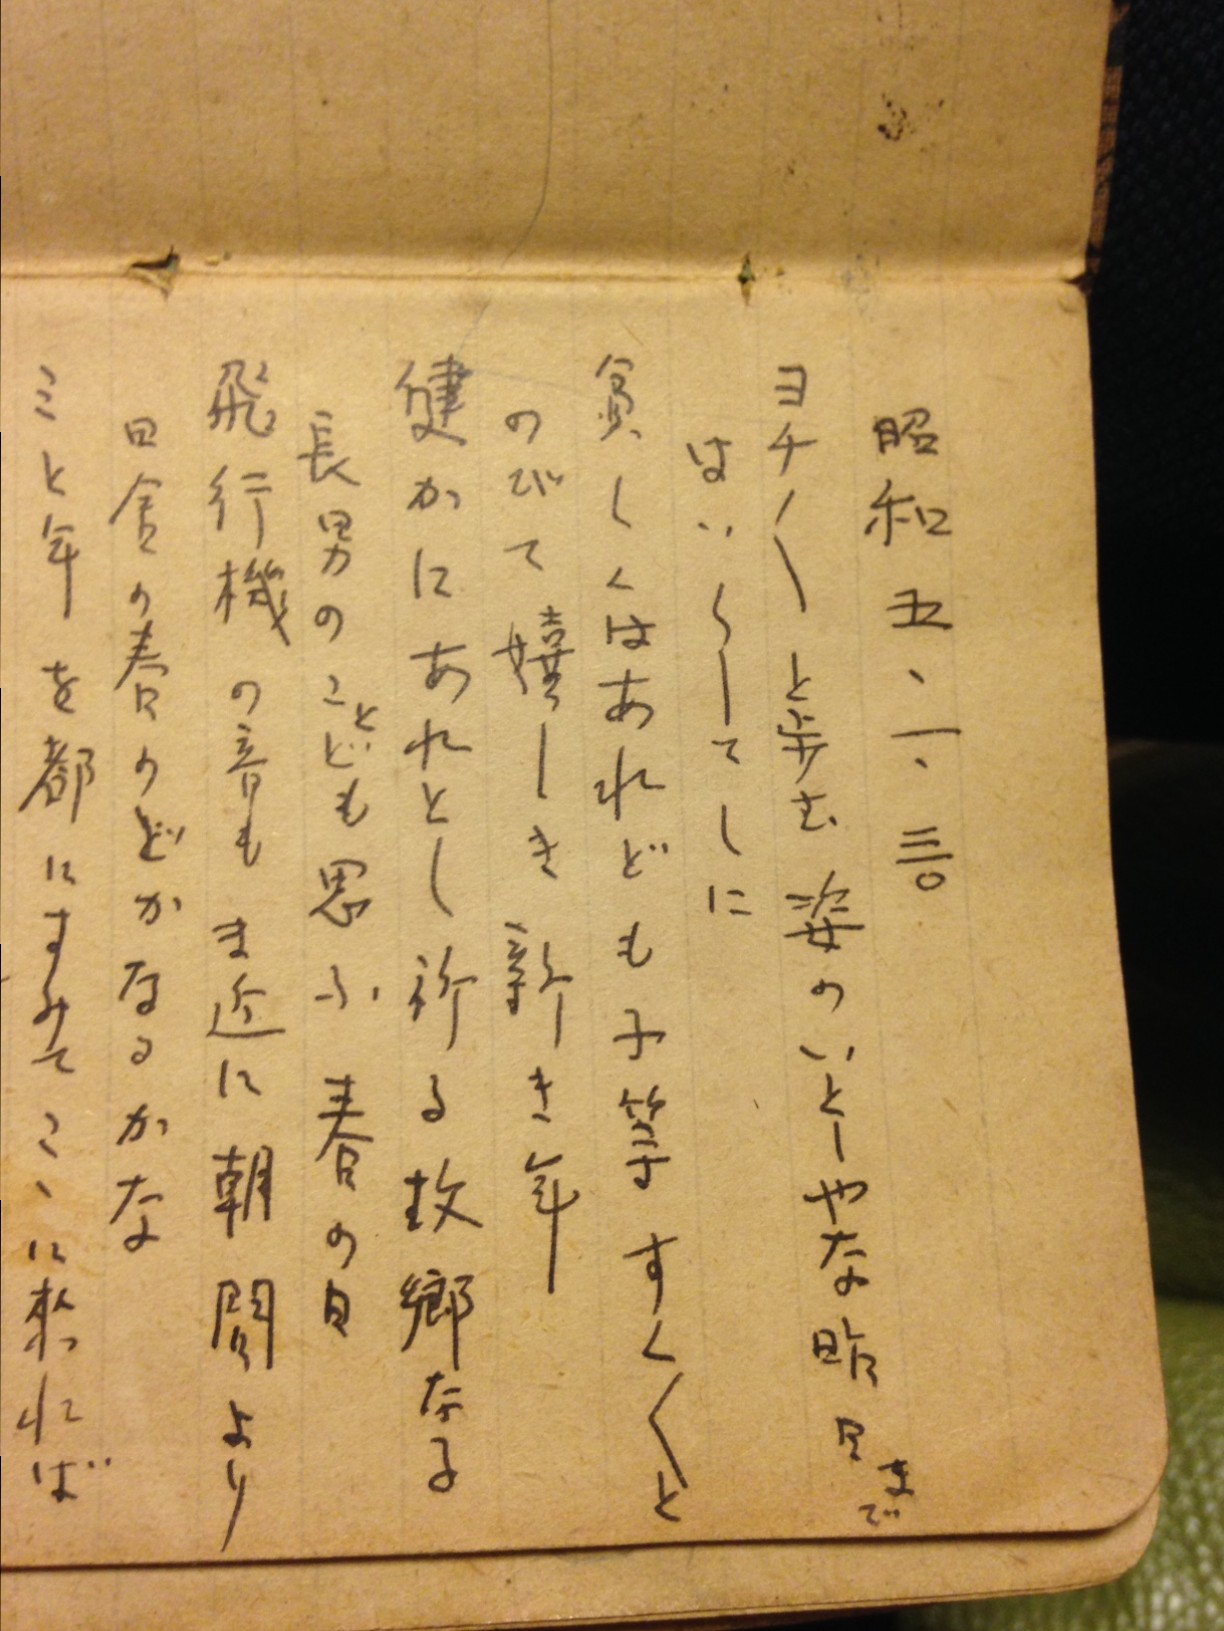 昭和五、一、三〇
ヨチ〱と歩む姿のいとしやな昨日まで
はい〱してしに
貧しくはあれども子等すく〱と
のびて嬉しき新き年
健かにあれとし祈る故郷なる
長男のことども思ふ春の日
飛行機の音もま近に朝間より
田舎の春のどかなるかな
ミと年を都にすみてこゝに来れば